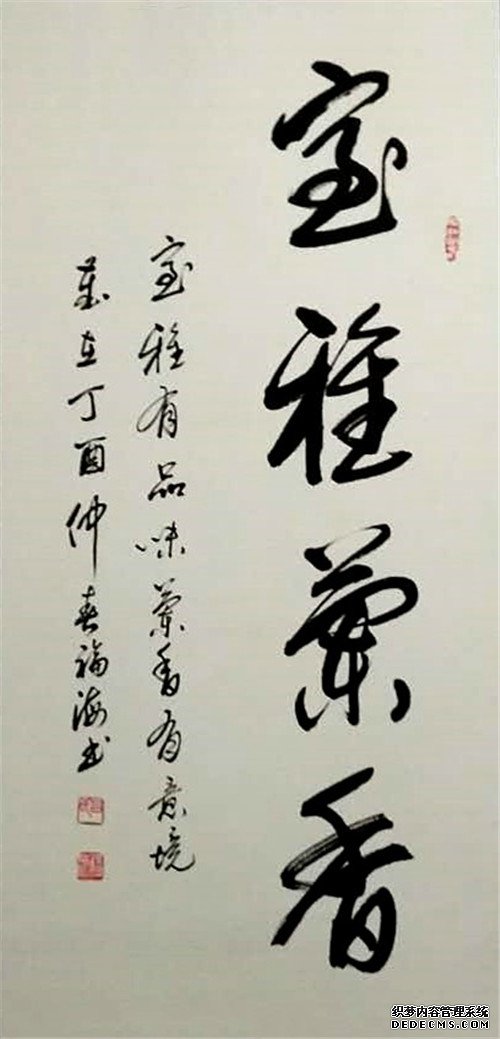 室雅兰香
室雅有品味兰香有意境
岁在丁酉仲春福海书
织梦内容管理系统
DEDECMS.COM